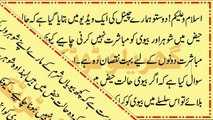 اسلام وعلیکم! دوستو ہمارے چینل کی ایک ویڈیو میں بتایا گیا ہے کہ حالت
حیض میں شوہر اور بیوی کو مباشرت نہیں کرنی چاہیے کیونکہ
مباشرت دونوں کے لیے بہت نقصان دہ ہے۔
سوال کیا ہے کہ اگر بیوی حالت حیض میں
بلائے تو اس سلسلے میں بیوی کو کیا کرنا چاہیے